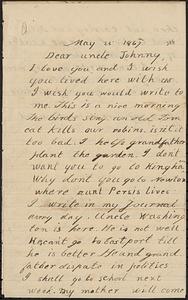 May 2 1867.
Dear uncle Johnny,
I love you and I wish
you lived here with us
I wish you would write to
me. This is a nice morning
the birds sing. our old Tom
cat kills our robins. isn't it
too bad. I help grandfather
plant the garden. I don't
want you to go to
Why dont you go to Newton
where aunt Persis lives
I write in my Journal
every day. Uncle Washing
ton is here. He is not well
He can't go to Eastport till
he is better. He and grand
father dispute in politics
I shall go to school next
week. my mother will come